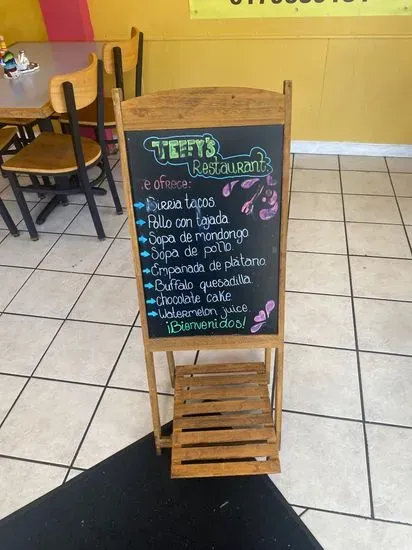 TEFFY's
Restaurant
Te ofrece:
Birria tacos
Pollo con tajada
Sopa de mondongo
Sopa de pollo
Empanada de plátano
Buffalo quesadilla
chocolate cake
Watermelon juice
¡Bienvenidos!